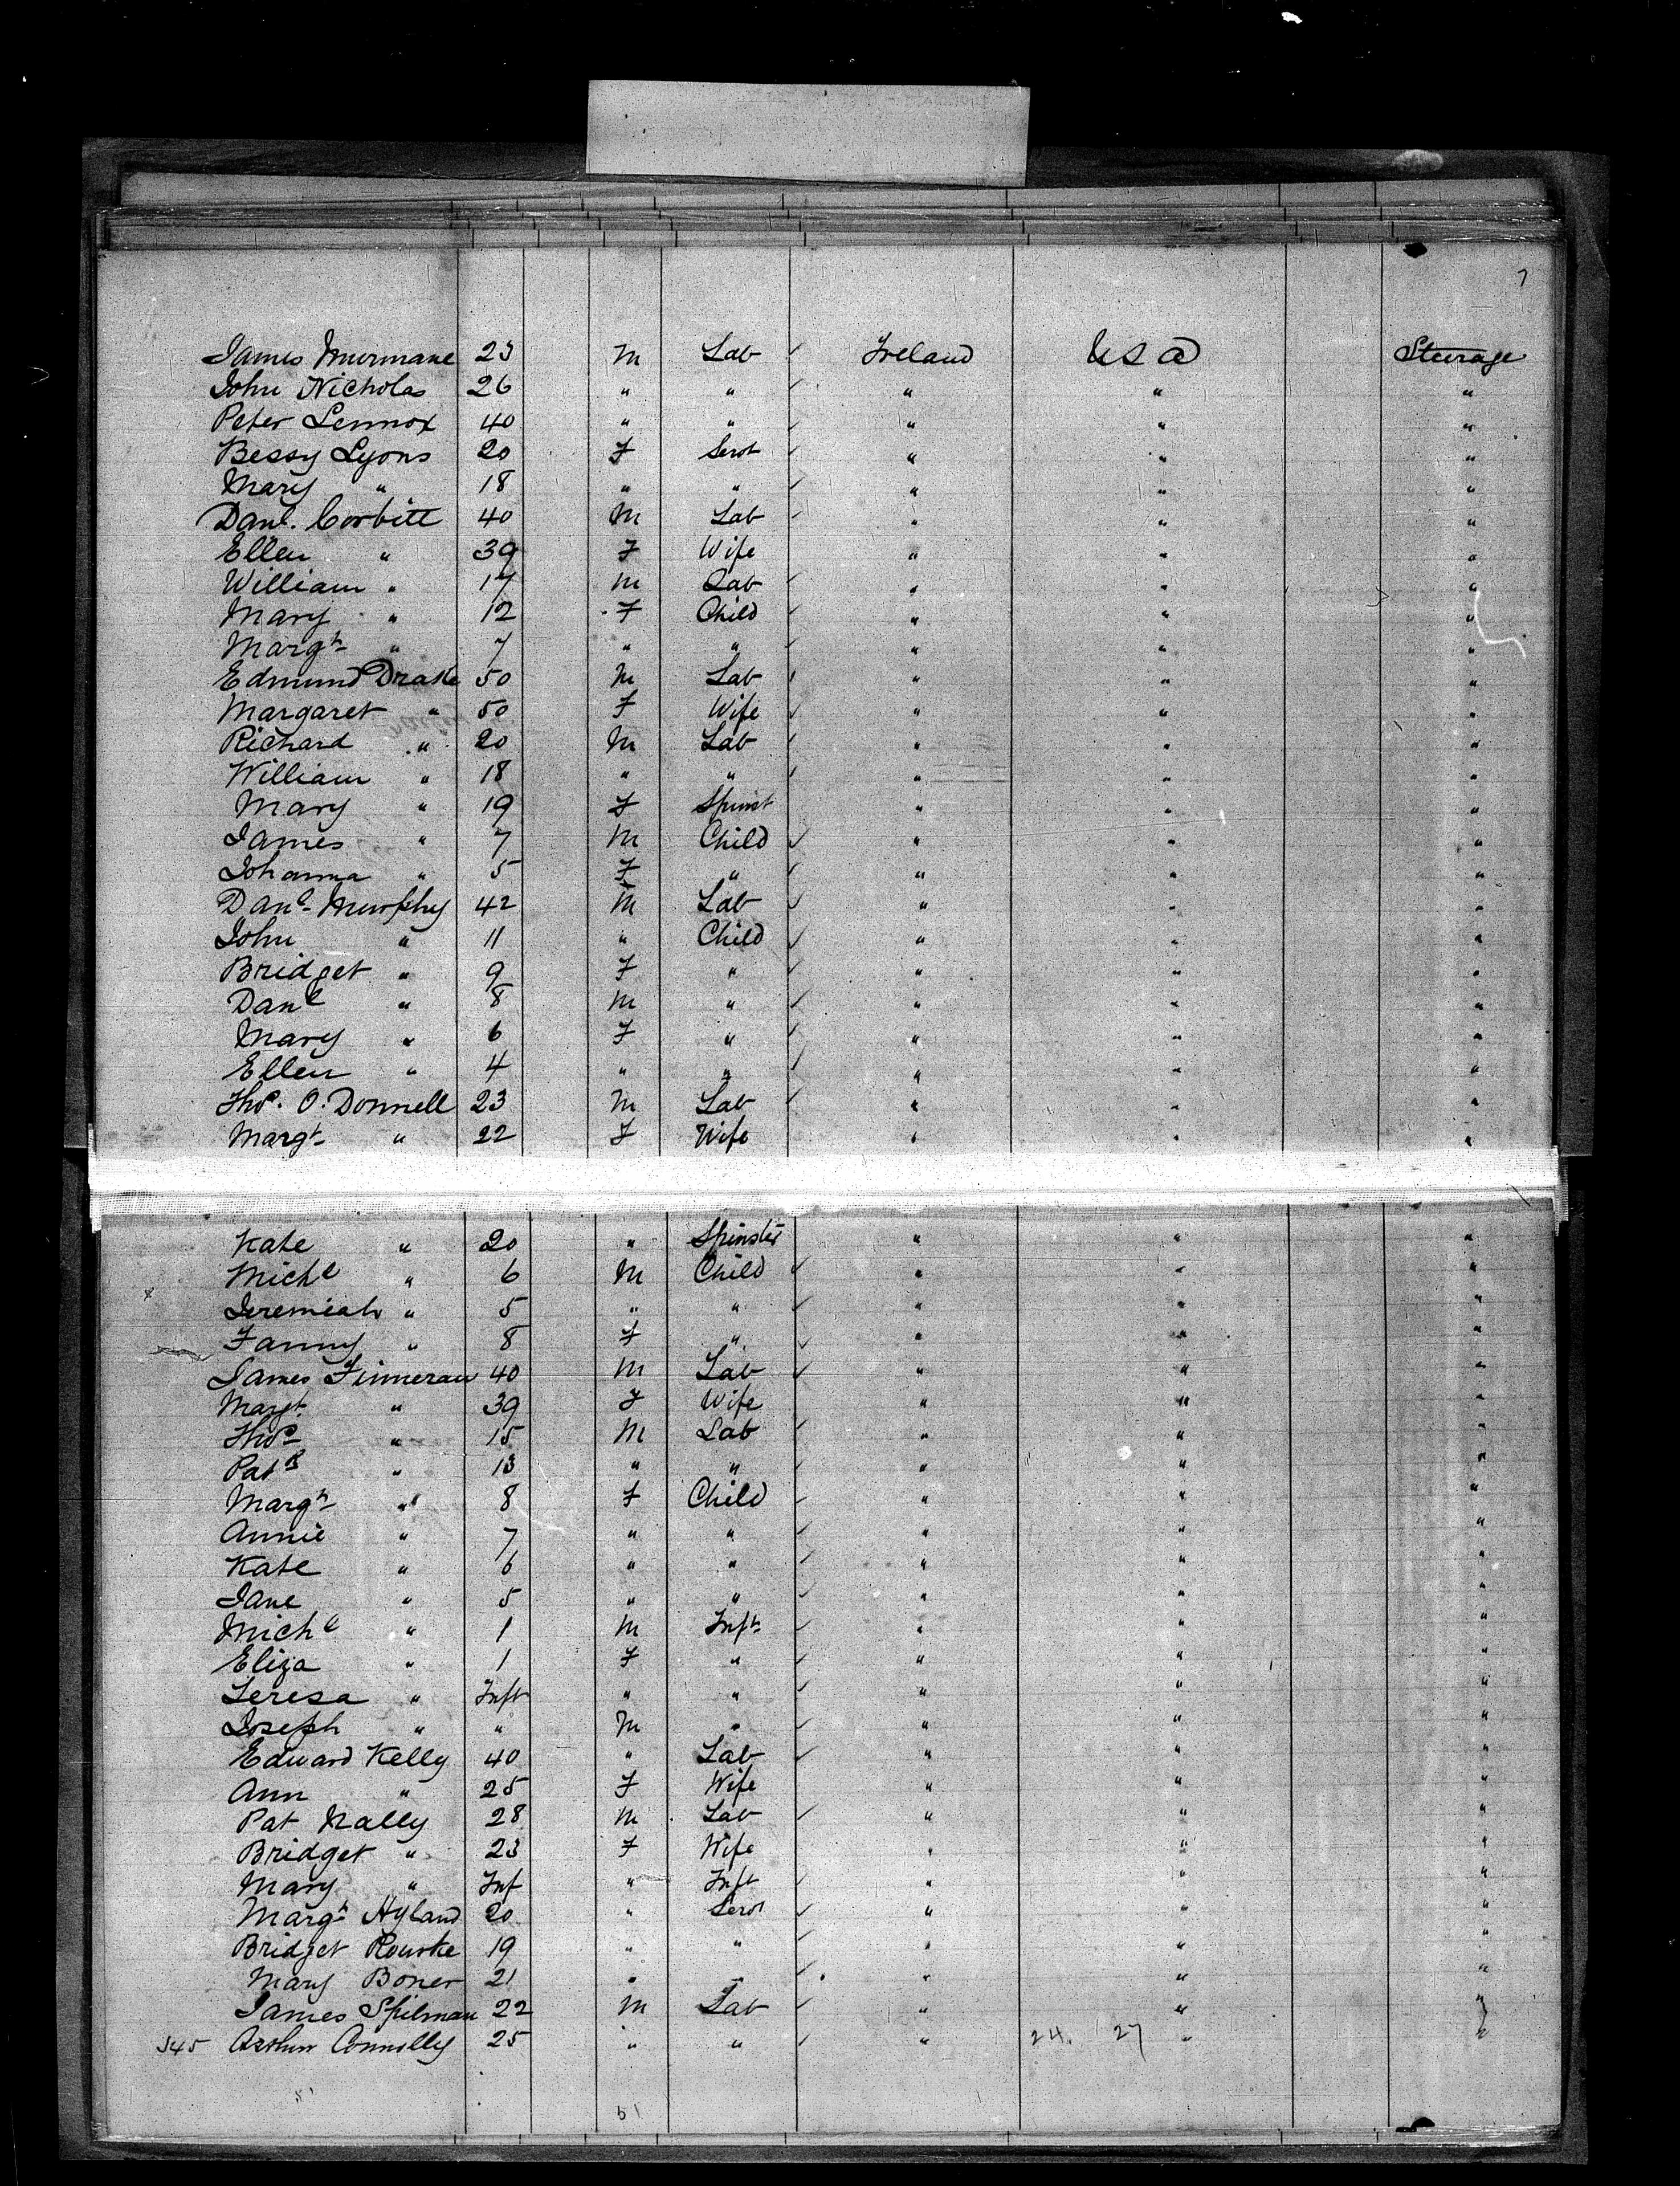 7
James Murmane 23 M Lab ✓ Ireland USA Steerage
John Nicholas 26 " " ✓ " " "
Peter Lennox 40 " " ✓ " " "
Bessy Lyons 20 F Servt ✓ " " "
Mary " 18 " " ✓ " " "
Danl. Corbitt 40 M Lab ✓ " " "
Ellen " 39 F Wife " " "
William " 17 M Lab ✓ " " "
Mary " 12 F Child ✓ " " "
Margt " 7 " " ✓ " " "
Edmund Drake 50 M Lab ✓ " " "
Margaret " 50 F Wife ✓ " " "
Richard " 20 M Lab ✓ " " "
William " 18 " " ✓ " " "
Mary " 19 F Spinst " " "
James " 7 M Child ✓ " " "
Johanna " 5 F " ✓ " " "
Danl Murphy 42 M Lab ✓ " " "
John " 11 " Child ✓ " " "
Bridget " 9 F " ✓ " " "
Danl " 8 M " ✓ " " "
Mary " 6 F " ✓ " " "
Ellen " 4 " " ✓ " " "
Thos. O. Donnell 23 M Lab ✓ " " "
Margt " 22 F Wife " " "
Kate " 20 " Spinster " " "
Michl " 6 M Child ✓ " " "
Jeremiah " 5 " " ✓ " " "
Fanny " 8 F " ✓ " " "
James Finneran 40 M Lab ✓ " " "
Margt. " 39 F Wife " " "
Thos " 15 M Lab ✓ " " "
Patk " 13 " " ✓ " " "
Margt " 8 F Child ✓ " " "
Annie " 7 " " ✓ " " "
Kate " 6 " " ✓ " " "
Jane " 5 " " ✓ " " "
Michl " 1 M Inft ✓ " " "
Eliza " 1 F " ✓ " " "
Teresa " Inft " " ✓ " " "
Joseph " " M " ✓ " " "
Edward Kelly 40 " Lab ✓ " " "
Ann " 25 F Wife " " "
Pat Nally 28 M Lab ✓ " " "
Bridget " 23 F Wife " " "
Mary " Inf " Inft ✓ " " "
Margt Hyland 20 " Servt ✓ " " "
Bridget Rourke 19 " " ✓ " " "
Mary Boner 21 " " ✓ " " "
James Spilman 22 M Lab ✓ " " "
345 Arthur Connolly 25 " " ✓ " 24. 27 " "
51